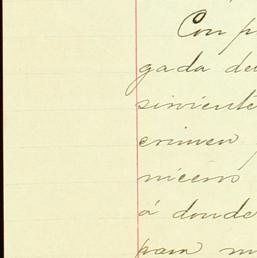 Con p
gada de
sirviente
crimen
niceno
á donde
para m